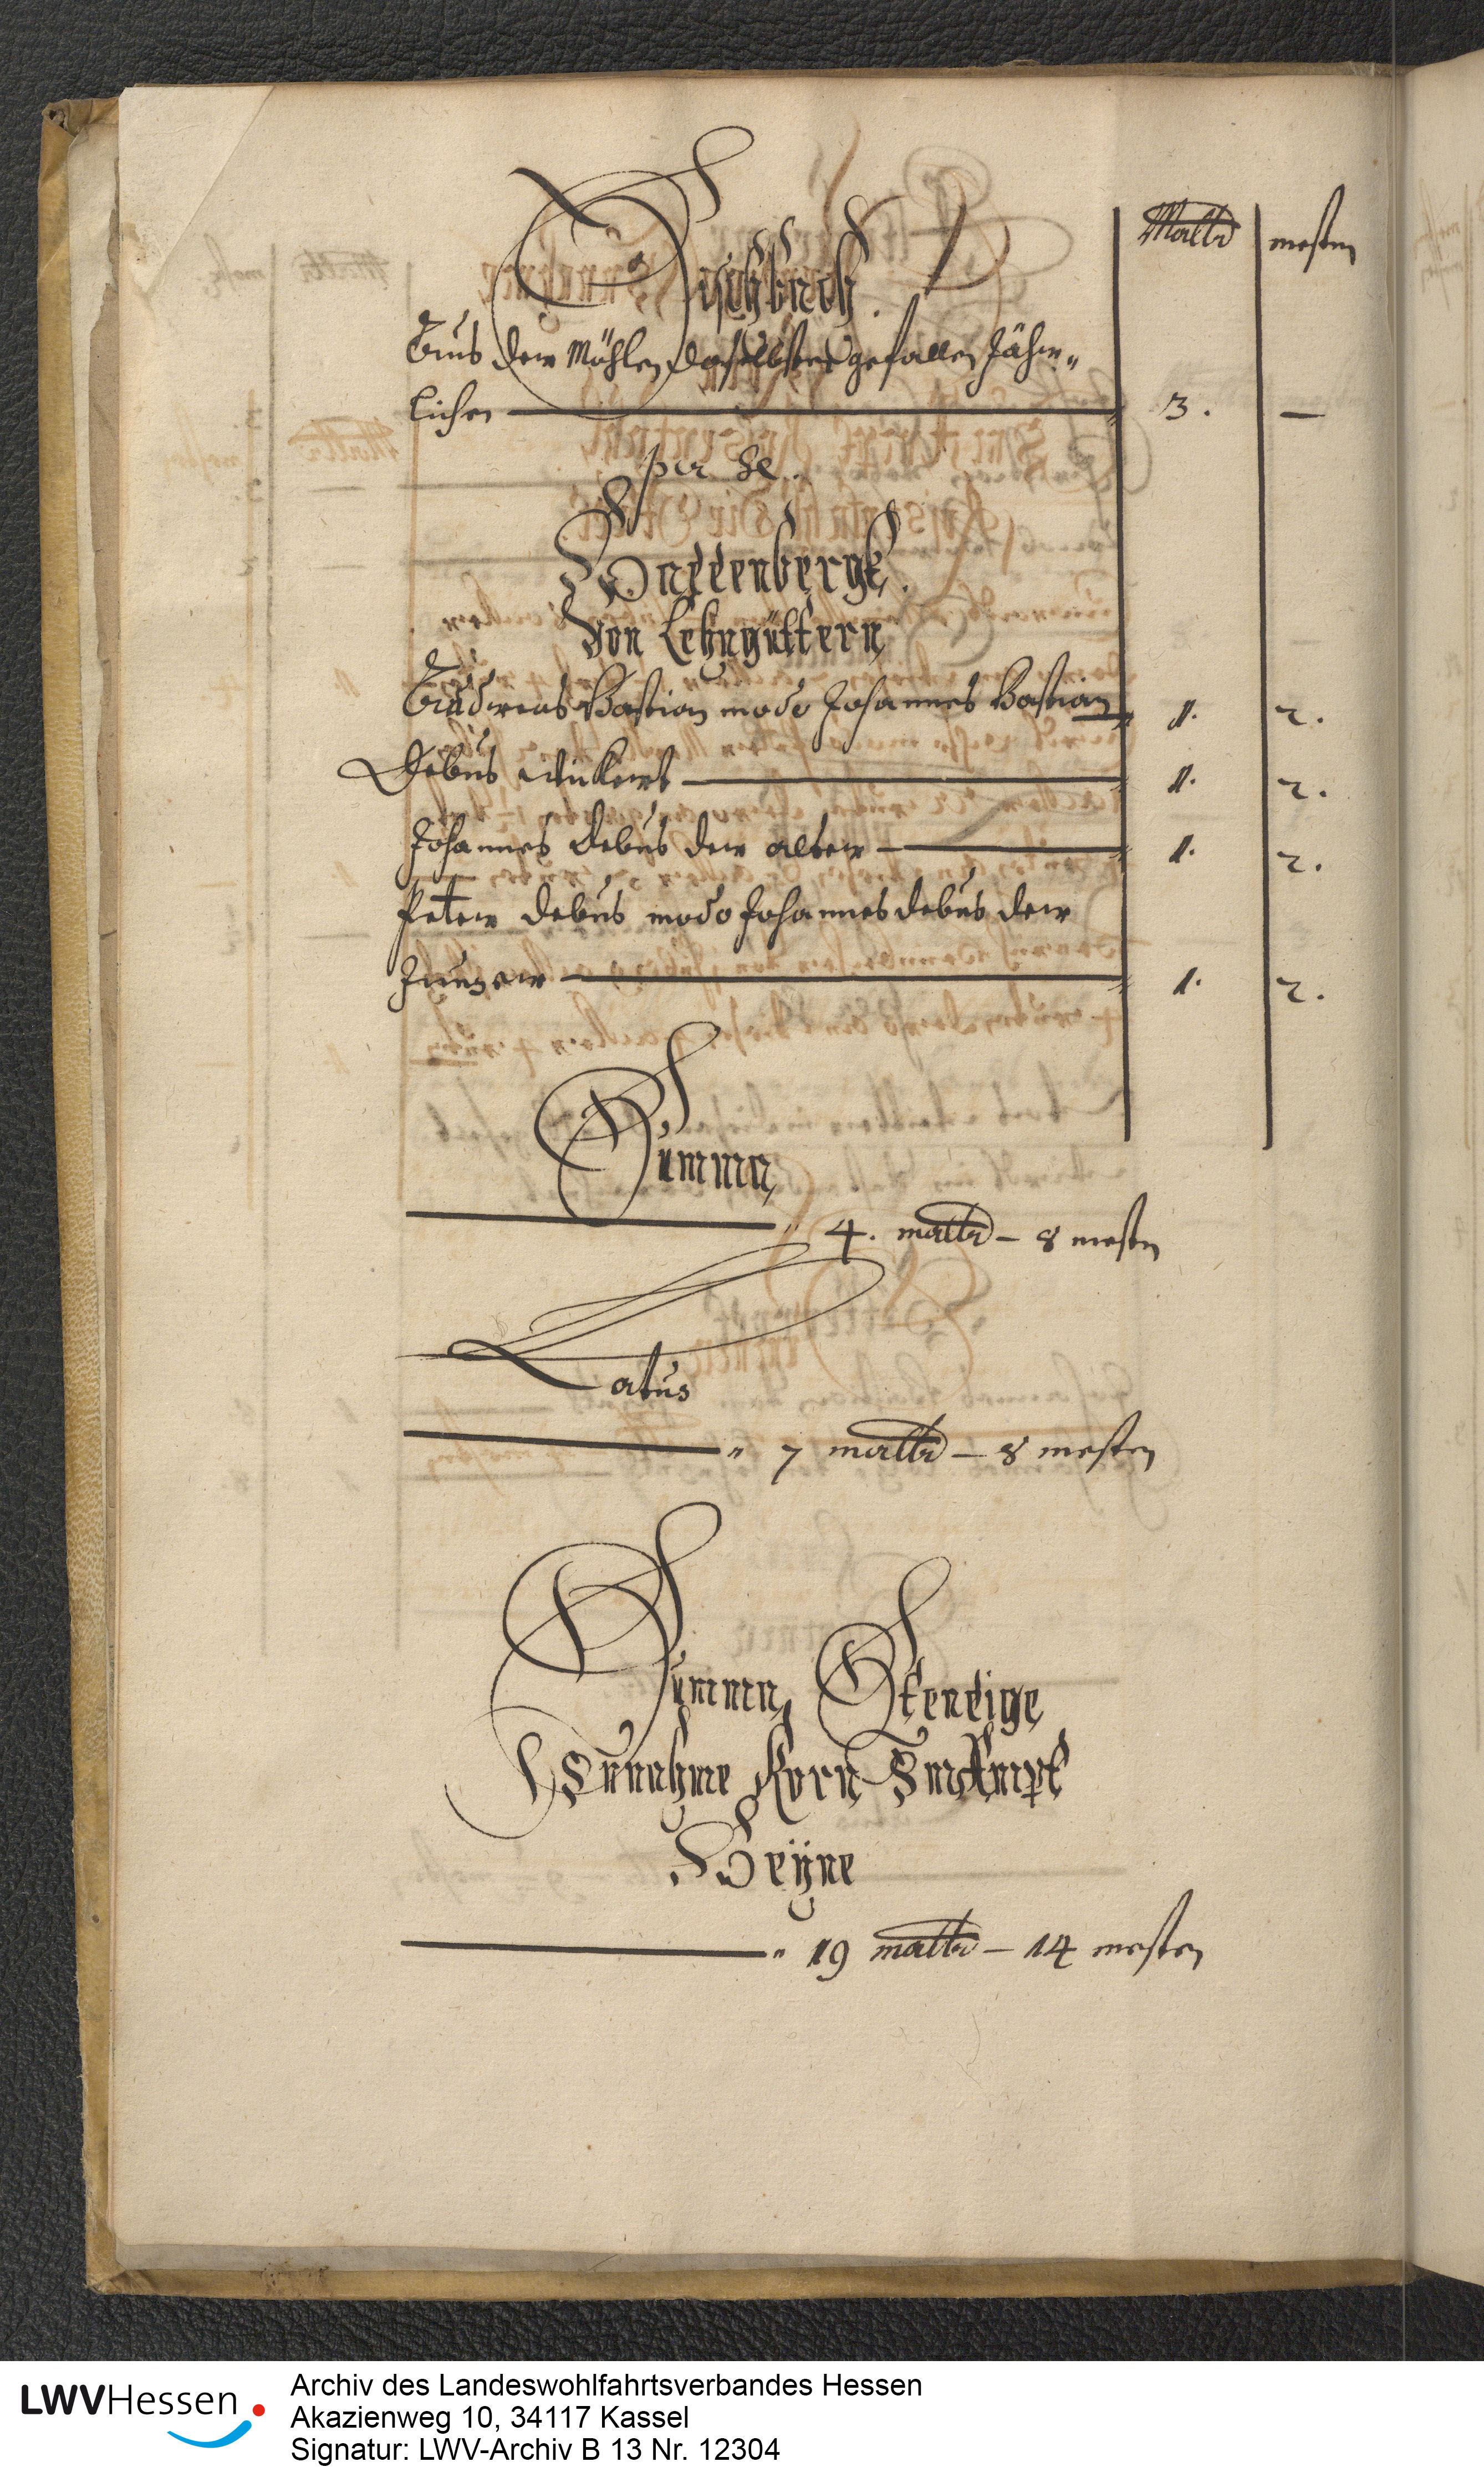 Maltr mesten
Fischbach.
Aus der Möhlen daselbsten gefallen Jähr„
lichen 3. —
per se.
Von Lehngüttern
Andreas Bastian modo Johannes Bastian 1. 2.
Debus 1. 2.
Johannes Debus der alter 1. 2.
Peter Debus modo Johannes Debus der
Junger 1. 2.
Summa
4. maltr – 8 mesten
Latus
7 maltr – 8 mesten
Summa Stendige
Einnahme Korn Im Ampt
19 maltr – 14 mesten
LWVHessen
Archiv des Landeswohlfahrtsverbandes Hessen
Akazienweg 10, 34117 Kassel
Signatur: LWV-Archiv B 13 Nr. 12304